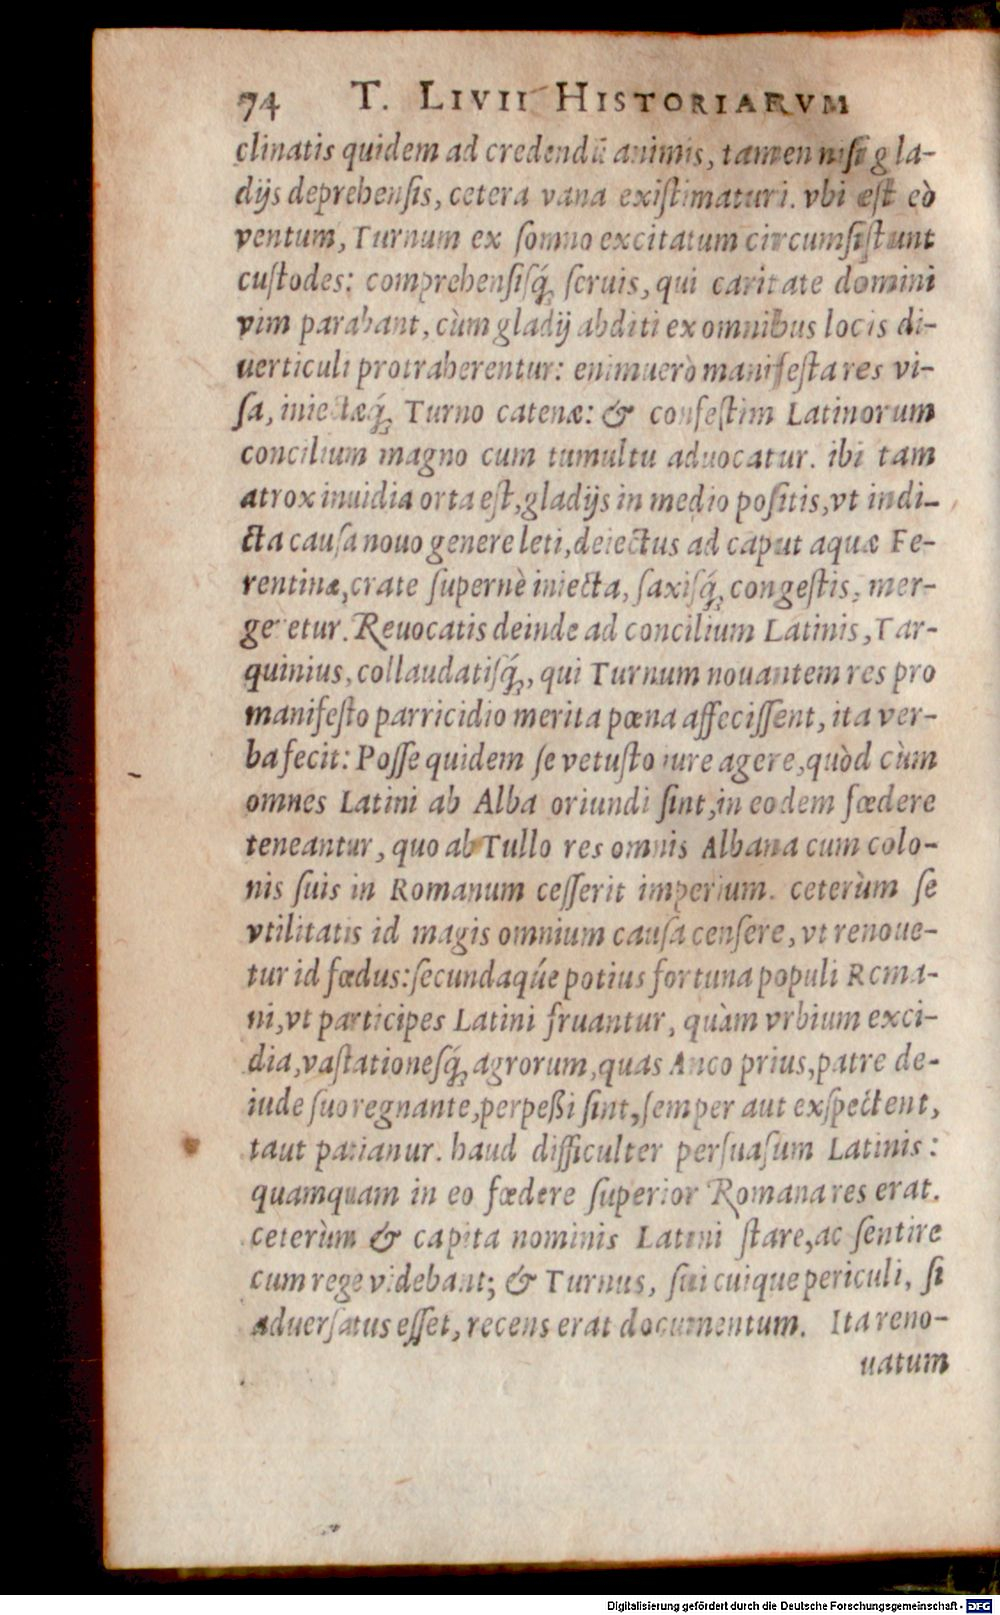 74 T. LIVII HISTORIARVM
clinatis quidem ad credendū animis, tamen nisi gla-
dijs deprehensis, cetera vana existimaturi. vbi est eò
ventum, Turnum ex somno excitatum circumsistunt
custodes: comprehensisq́; seruis, qui caritate domini
vim parabant, cùm gladij abditi ex omnibus locis di-
uerticuli protraherentur: enimuerò manifesta res vi-
sa, iniectæq́; Turno catenæ: & confestim Latinorum
concilium magno cum tumultu aduocatur. ibi tam
atrox inuidia orta est, gladijs in medio positis, vt indi-
cta causa nouo genere leti, deiectus ad caput aquæ Fe-
rentinæ, crate supernè iniecta, saxisq́; congestis, mer-
geretur. Reuocatis deinde ad concilium Latinis, Tar-
quinius, collaudatisq́;, qui Turnum nouantem res pro
manifesto parricidio merita pœna affecissent, ita ver-
ba fecit: Posse quidem se vetusto iure agere, quòd cùm
omnes Latini ab Alba oriundi sint, in eodem fœdere
teneantur, quo ab Tullo res omnis Albana cum colo-
nis suis in Romanum cesserit imperium. ceterùm se
vtilitatis id magis omnium causa censere, vt renoue-
tur id fœdus: secundaqúe potius fortuna populi Roma-
ni, vt participes Latini fruantur, quàm vrbium exci-
dia, vastationesq́; agrorum, quas Anco prius, patre de-
iude suo regnante, perpeßi sint, semper aut exspectent,
taut patianur. haud difficulter persuasum Latinis:
quamquam in eo fœdere superior Romana res erat.
ceterùm & capita nominis Latini stare, ac sentire
cum rege videbant; & Turnus, sui cuique periculi, si
aduersatus esset, recens erat documentum. Ita reno-
uatum
Digitalisierung gefördert durch die Deutsche Forschungsgemeinschaft - DFG